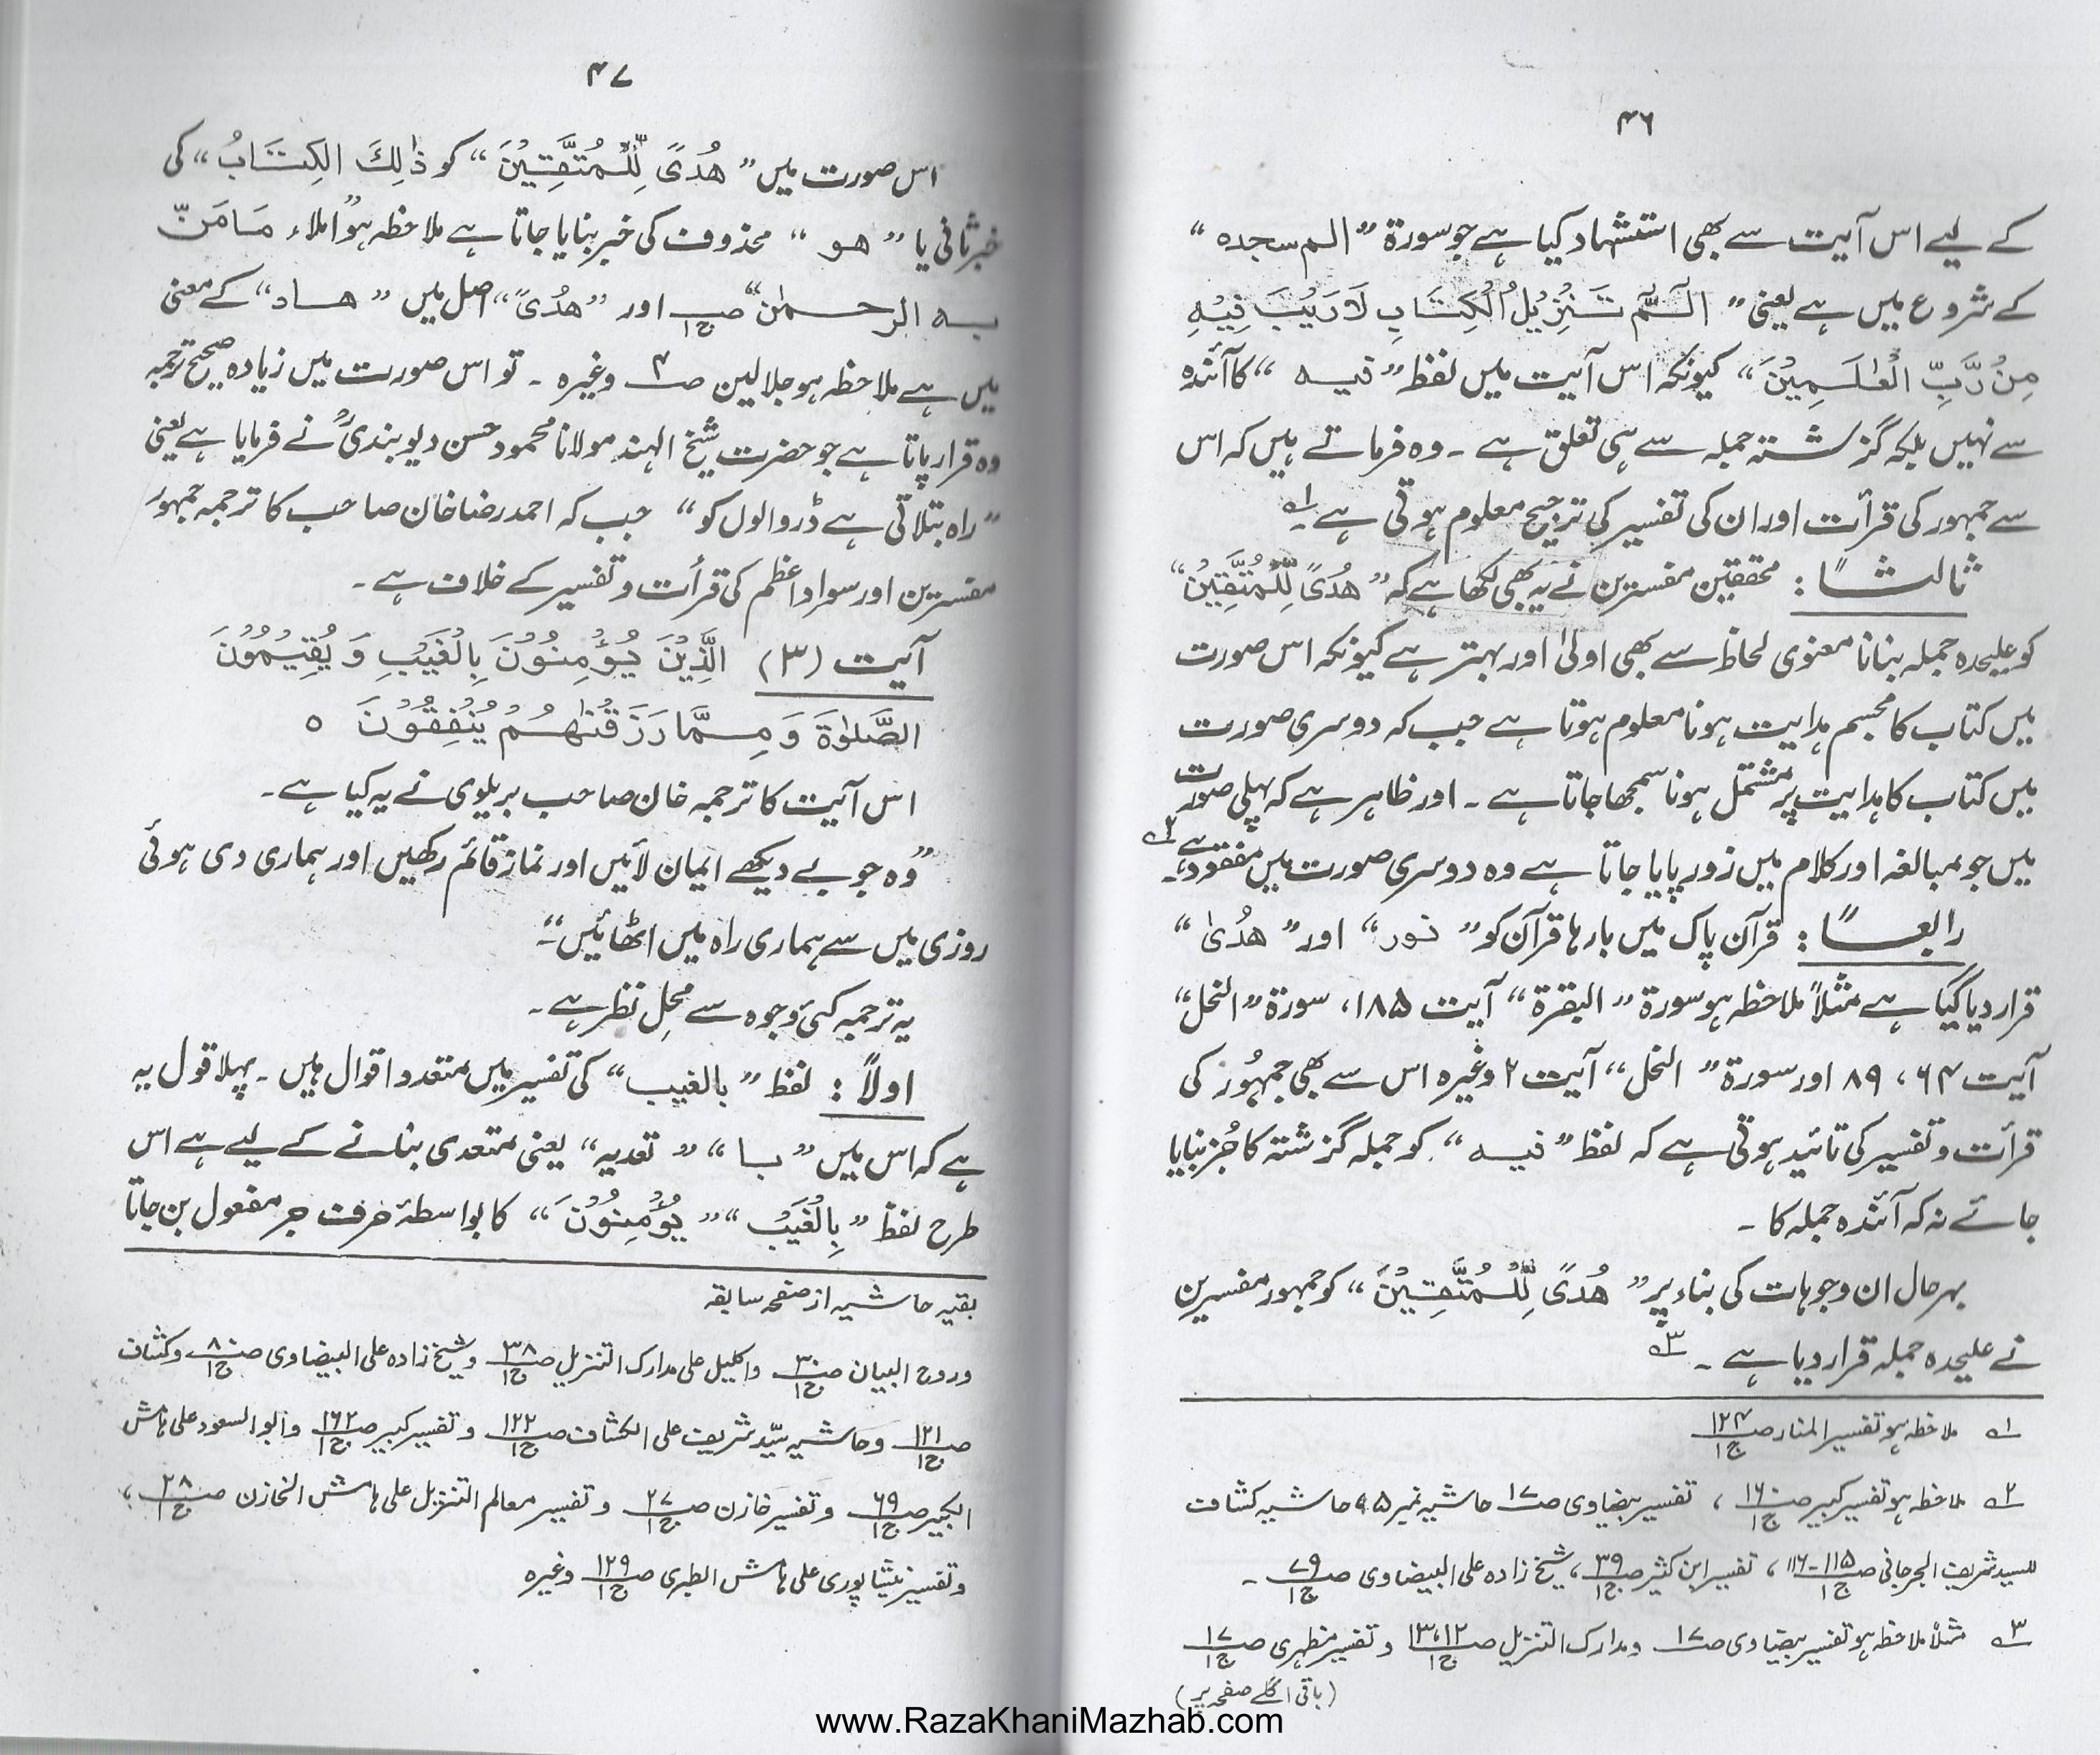 ۴۶
کے لیے اس آیت سے بھی استشہاد کیا ہے جو سورۃ ”الم سجدہ“
کے شروع میں ہے یعنی ”الٓمّٓ تَنْزِیْلُ الْکِتَابِ لَارَیْبَ فِیْہِ
مِنْ رَّبِّ الْعٰلَمِیْنَ“ کیونکہ اس آیت میں لفظ ”فیہ“ کا آئندہ
سے نہیں بلکہ گزشتہ جملہ سے ہی تعلق ہے ۔ وہ فرماتے ہیں کہ اس
سے جمہور کی قرأت اور ان کی تفسیر کی ترجیح معلوم ہوتی ہے ۱ــہ
ثالثاً : محققین مفسرین نے یہ بھی لکھا ہے کہ ”ھُدًی لِّلْمُتَّقِیْنَ“
کو علیحدہ جملہ بنانا معنوی لحاظ سے بھی اولیٰ اور بہتر ہے کیونکہ اس صورت
میں کتاب کا مجسم ہدایت ہونا معلوم ہوتا ہے جب کہ دوسری صورت
میں کتاب کا ہدایت پر مشتمل ہونا سمجھا جاتا ہے ۔ اور ظاہر ہے کہ پہلی صورت
میں جو مبالغہ اور کلام میں زور پایا جاتا ہے وہ دوسری صورت میں مفقود ہے ۔ ۲ــہ
رابعاً : قرآن پاک میں بارہا قرآن کو ”نور“ اور ”ھدُیٰ“
قرار دیا گیا ہے مثلاً ملاحظہ ہو سورۃ ”البقرۃ“ آیت ۱۸۵، سورۃ ”النحل“
آیت ۶۴، ۸۹ اور سورۃ ”النحل“ آیت ۲ وغیرہ اس سے بھی جمہُور کی
قرأت و تفسیر کی تائید ہوتی ہے کہ لفظ ”فیہ“ کو جملہ گزشتہ کا جُز بنایا
جائے نہ کہ آئندہ جملہ کا ۔
بہرحال ان وجوہات کی بناء پر ”ھُدًی لِّلْمُتَّقِیْنَ“ کو جمہور مفسرین
نے علیحدہ جملہ قرار دیا ہے ۔ ۳ــہ
۱ــہ ملاحظہ ہو تفسیر المنار صـ۱۲۴ ج۱
۲ــہ ملاحظہ ہو تفسیر کبیر صـ۱۶۰ ج۱ ، تفسیر بیضاوی صـ۱۷ حاشیہ نمبر ۵، حاشیہ کشاف
للسید شریف الجرجانی صـ۱۱۵-۱۱۶ ج۱ ، تفسیر ابن کثیر صـ۳۹ ج۱، شیخ زادہ علی البیضاوی صـ۷۹ ج۱ ۔
۳ــہ مثلاً ملاحظہ ہو تفسیر بیضاوی صـ۱۷ و مدارک التنزیل صـ۱۳،۱۲ ج۱ و تفسیر مظہری صـ۱۷ ج۱
(باقی اگلے صفحہ پر)
۴۷
اس صورت میں ”ھُدًی لِّلْمُتَّقِیْنَ“ کو ذٰلِکَ الکِتَابُ“ کی
خبر ثانی یا ”ھو“ محذوف کی خبر بنایا جاتا ہے ملاحظہ ہو ”املاء مَامَنّ
بہ الرحمٰن“ صـ ج۱ اور ”ھدًی“ اصل میں ”ھاد“ کے معنی
میں ہے ملاحظہ ہو جلالین صـ۴ وغیرہ ۔ تو اس صورت میں زیادہ صحیح ترجمہ
وہ قرار پاتا ہے جو حضرت شیخ الہند مولانا محمود حسن دیوبندیؒ نے فرمایا ہے یعنی
”راہ بتلاتی ہے ڈر والوں کو“ جب کہ احمد رضا خان صاحب کا ترجمہ جمہور
مفسرین اور سوادِ اعظم کی قرأت و تفسیر کے خلاف ہے ۔
آیت (۳) الَّذِیْنَ یُؤْمِنُوْنَ بِالْغَیْبِ وَ یُقِیْمُوْنَ
الصَّلٰوۃَ وَ مِمَّا رَزَقْنٰھُمْ یُنْفِقُوْنَ ○
اس آیت کا ترجمہ خان صاحب بریلوی نے یہ کیا ہے ۔
”وہ جو بے دیکھے ایمان لائیں اور نماز قائم رکھیں اور ہماری دی ہوئی
روزی میں سے ہماری راہ میں اٹھائیں“۔
یہ ترجمہ کئی وجوہ سے محِل نظر ہے ۔
اولاً : لفظ ”بالغیب“ کی تفسیر میں متعدد اقوال ہیں ۔ پہلا قول یہ
ہے کہ اس میں ”با“ ”تعدیہ“ یعنی متعدی بنانے کے لیے ہے اس
طرح لفظ ”بِالْغَیْبِ“ ”یُؤْمِنُوْنَ“ کا بواسطۂ حرف جر مفعول بن جاتا
بقیہ حاشیہ از صفحہ سابقہ
وروح البیان صـ۳۰ ج۱ واکلیل علی مدارک التنزیل صـ۳۸ ج۱ وشیخ زادہ علی البیضاوی صـ۸۰ ج۱ وکشاف
صـ۱۲۱ ج۱ وحاشیہ سیّد شریف علی الکشاف صـ۱۲۲ ج۱ و تفسیر کبیر صـ۱۶۲ ج۱ وابو السعود علی ہامش
الکبیر صـ۶۹ ج۱ و تفسیر خازن صـ۲۷ ج۱ و تفسیر معالم التنزیل علی ہامش الخازن صـ۲۸ ج۱ ،
و تفسیر نیشاپوری علی ہامش الطبری صـ۱۲۹ ج۱ وغیرہ
www.RazaKhaniMazhab.com